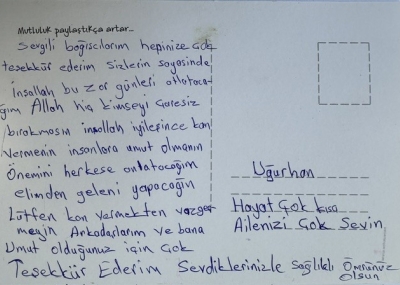 Mutluluk paylaştıkça artar...
Sevgili bağışcılarım hepinize çok
teşekkür ederim sizlerin sayesinde
İnşallah bu zor günleri atlataca-
ğım Allah hiç kimseyi çaresiz
bırakmasın inşallah iyileşince kan
vermenin insanlara umut olmanın
Önemini herkese anlatacağım
elimden geleni yapacağım
Lütfen kan vermekten vazgeç
meyin Arkadaşlarım ve bana
Umut olduğunuz için çok
Teşekkür Ederim Sevdiklerinizle Sağlıklı Ömrünüz
Olsun
Uğurhan
Hayat Çok kısa
Ailenizi Çok Sevin